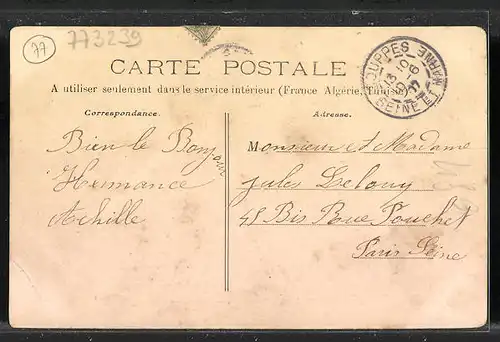 77
773239
CARTE POSTALE
A utiliser seulement dans le service intérieur (France Algérie, Tunisie)
Correspondance.
Adresse.
Bien le Bonjour
Hermance
Achille
Monsieur et Madame
Jules
45 Bis Rue Pouchet
Paris Seine
SOUPPES
SEINE ET MARNE